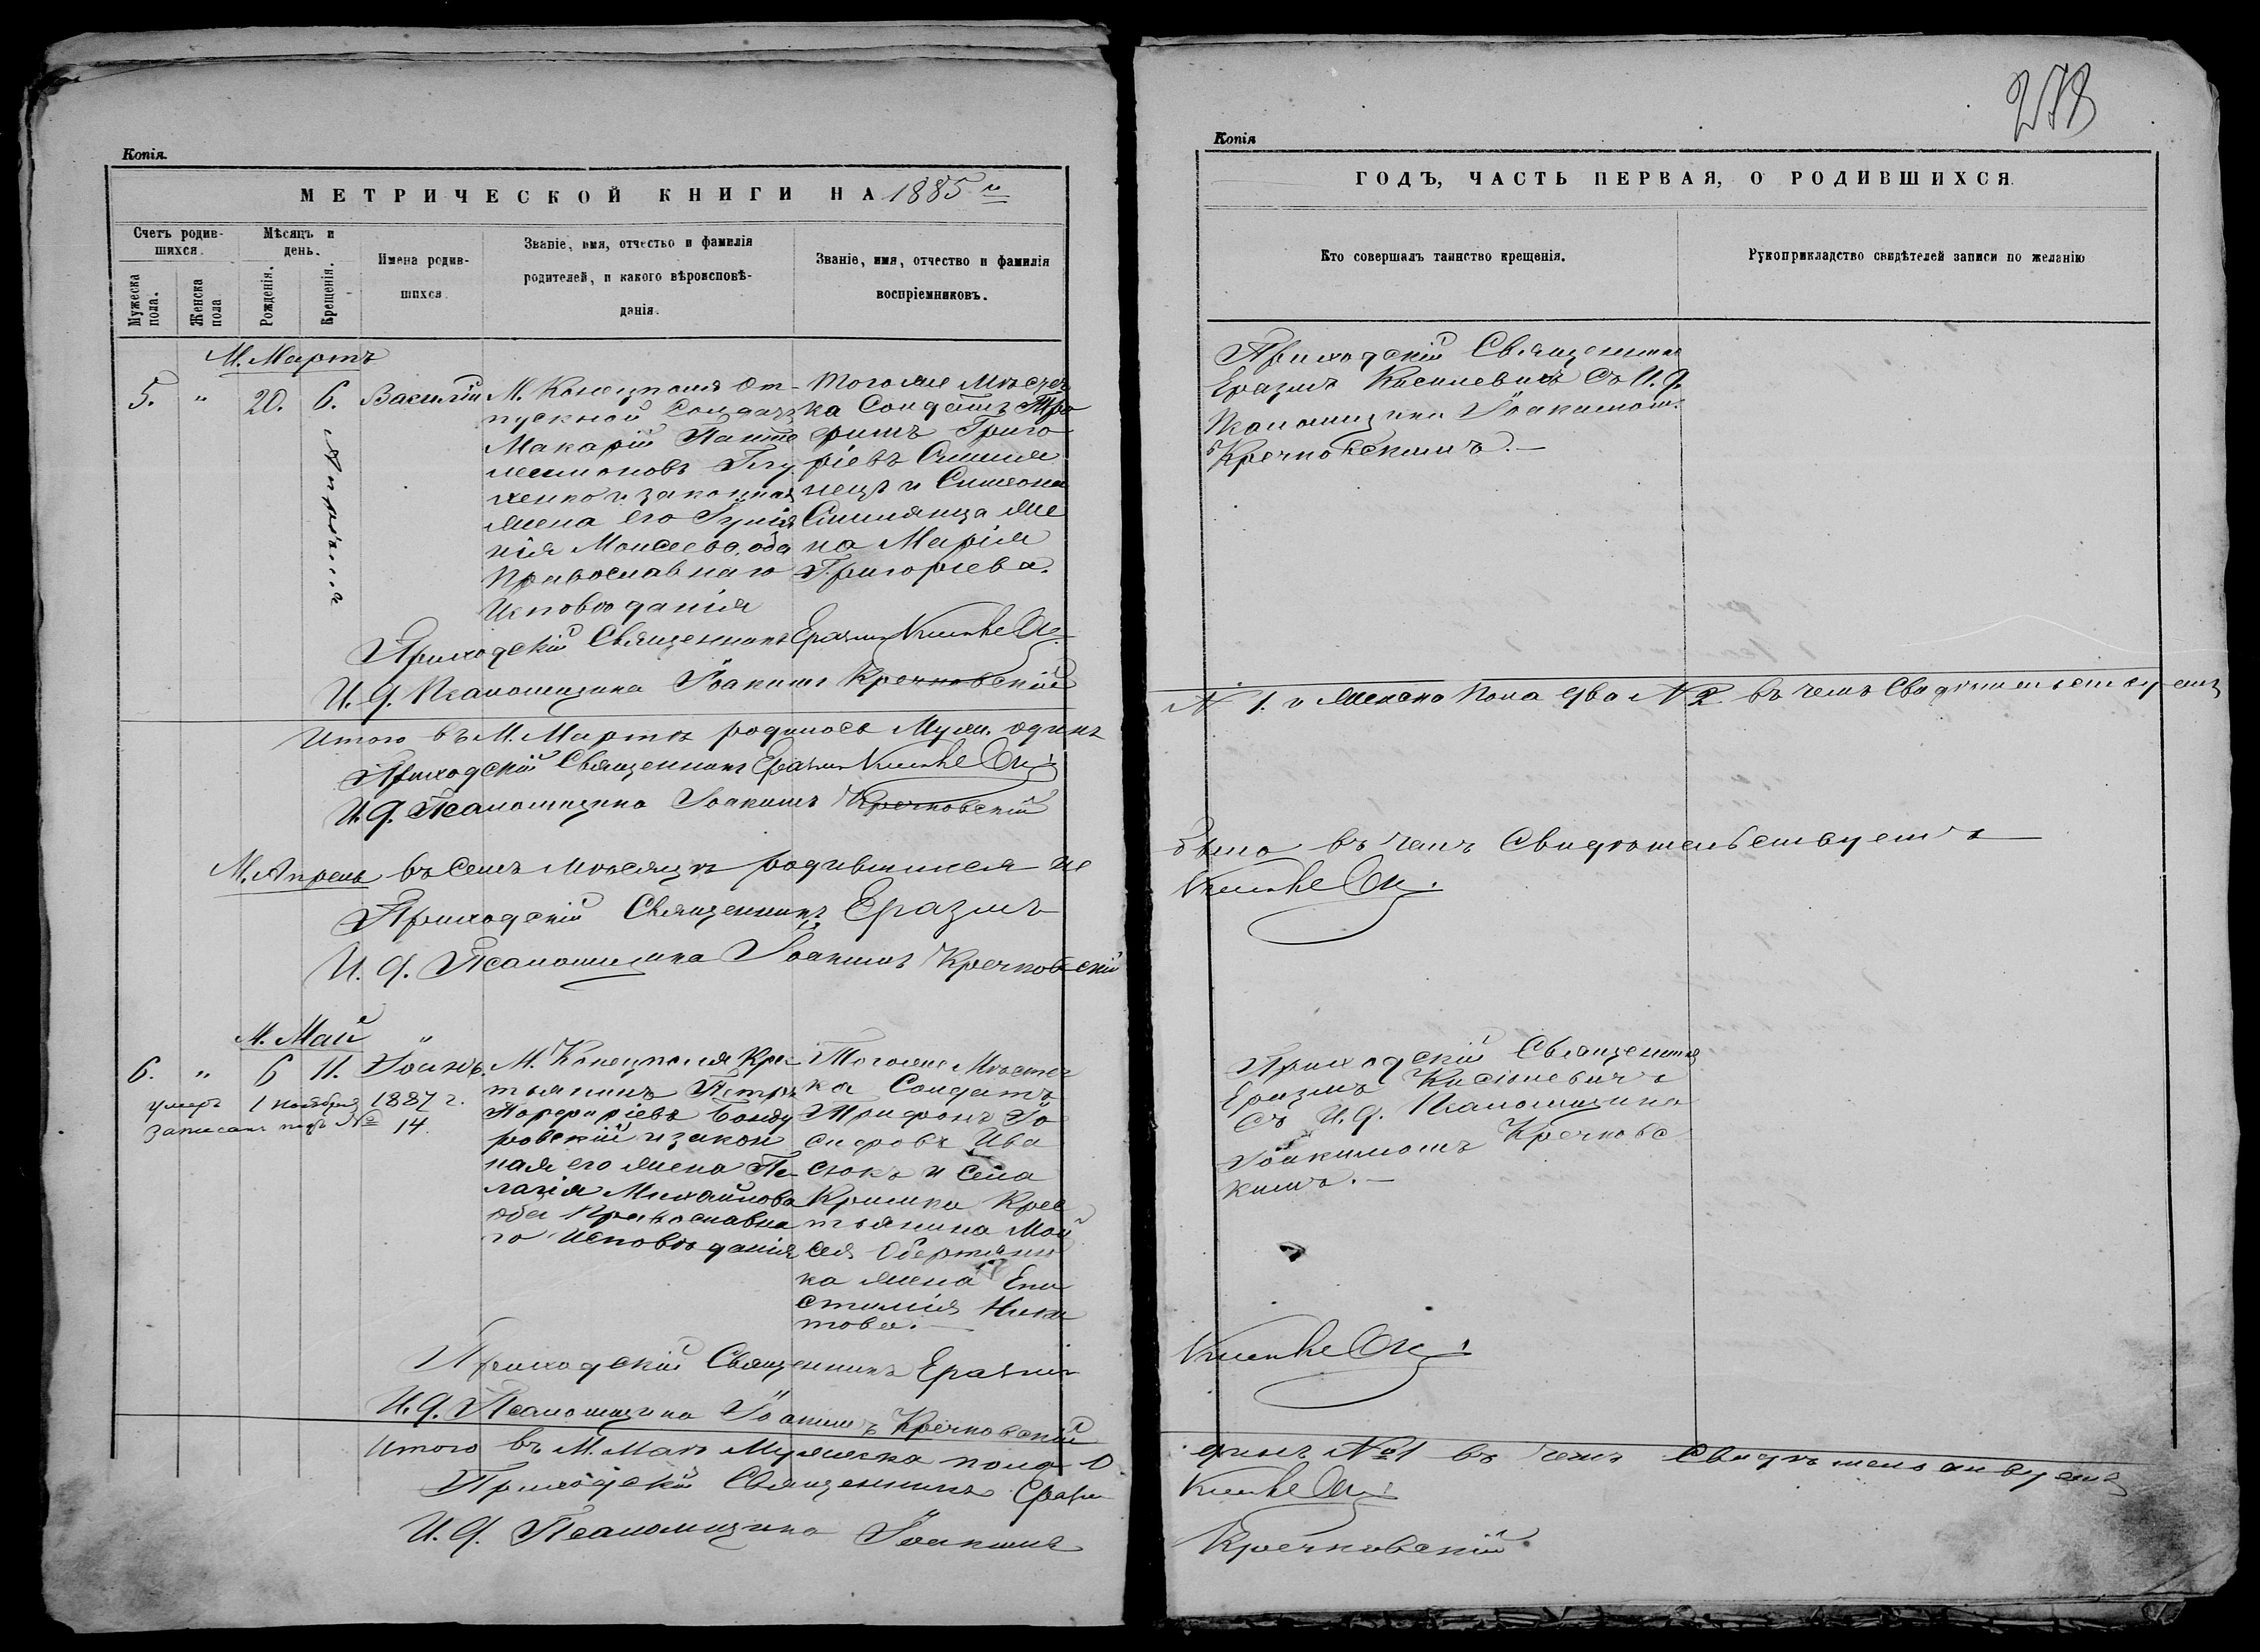 Копія.
МЕТРИЧЕСКОЙ КНИГИ НА 1885 й
Счетъ родившихся.
Мѣсяцъ и день.
Имена родившихся.
Званіе, имя, отчество и фамилія родителей, и какого вѣроисповѣданія.
Званіе, имя, отчество и фамилія воспріемниковъ.
Мужеска пола.
Женска пола
Рожденія.
Крещенія.
М. Мартъ
5. " 20. 6. Апрѣля Василій
М. Конецполя От-
пускной Солдатъ
Макарій Панте
леимоновъ
женко и законная
жена его
нія Моисеева, оба
Православнаго
Исповѣданія
Тогоже Мѣстеч
ка Солдатъ Тро
фимъ Григо
ріевъ
нецъ и Симеона
жe
на Марія
Григоріева.
Приходскій Священникъ Еразмъ
И. д. Псаломщика Іоакимъ Кречковскій
Итого въ М. Мартѣ родилось Муж. одинъ
Приходскій Священникъ Еразмъ
И. д. Псаломщика Іоакимъ Кречковскій
М. Апрель въ семъ мѣсяцѣ родившихся не
Приходскій Священникъ Еразмъ
И. д. Псаломщика Іоакимъ Кречковскій
М. Май
6. " 6 11. Іоаннъ.
умеръ 1 ноября 1887 г.
записанъ подъ № 14.
М. Конецполя Крес
тьянинъ Петръ
Порфиріевъ Бонду
ровскій и закон
ная его жена Пе-
лагія Михайлова
оба Православна
го Исповѣданія
Тогоже Мѣстеч
ка Солдатъ
Трифонъ Іо
сифовъ Ива
сюкъ и села
Кримки Крес
тьянина Мои
сея
ка жена Епи
стимія
това.
Приходскій Священникъ Еразмъ
И. д. Псаломщика Іоакимъ Кречковскій
Итого въ М. Маѣ Мужеска пола о
Приходскій Священникъ Еразмъ
И. д. Псаломщика Іоакимъ
278
Копія
ГОДЪ, ЧАСТЬ ПЕРВАЯ, О РОДИВШИХСЯ.
Кто совершалъ таинство крещенія.
Рукоприкладство свидѣтелей записи по желанію
Приходскій Священникъ
Еразмъ Касіневичъ съ И. д.
Псаломщика Іоакимом
ъ Кречковскимъ.—
№ 1. и Женска Пола два № 2 въ чемъ Свидѣтельствуетъ
было въ чемъ Свидѣтельствуетъ
Приходскій Священникъ
Еразмъ Касіневичъ
съ И. д. Псаломщика
Іоакимомъ Кречковс
кимъ.—
динъ № 1 въ чемъ Свидѣтельствуетъ
Кречковскій